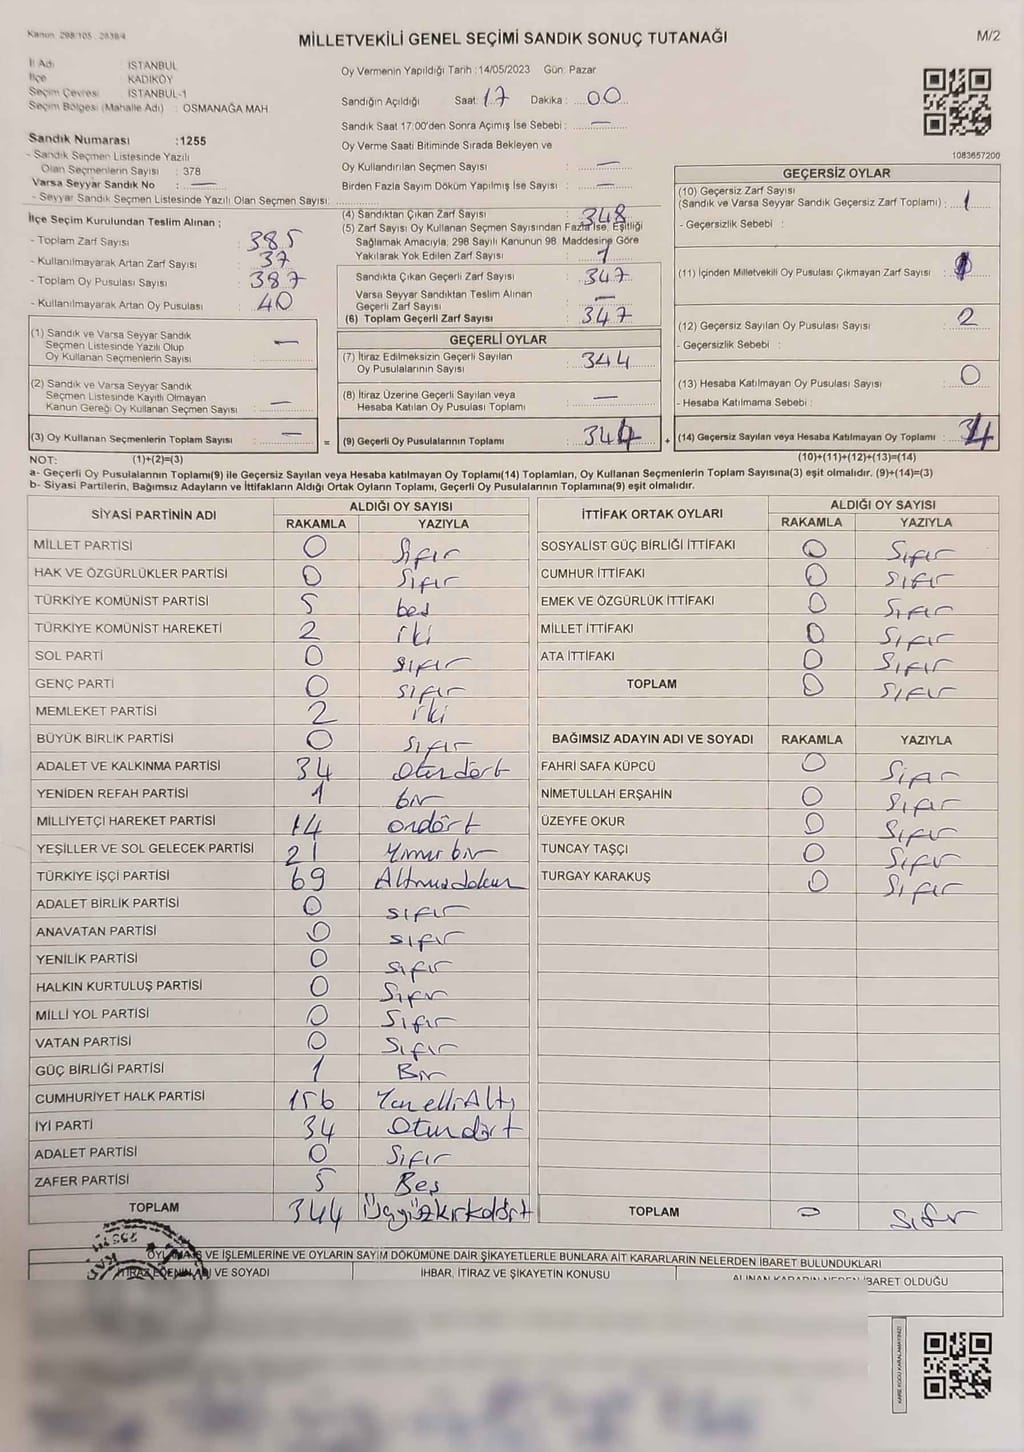 Kanun: 298/105 - 2839/4
MİLLETVEKİLİ GENEL SEÇİMİ SANDIK SONUÇ TUTANAĞI
M/2
İl Adı : İSTANBUL
İlçe : KADIKÖY
Seçim Çevresi : İSTANBUL-1
Seçim Bölgesi (Mahalle Adı) : OSMANAĞA MAH
Sandık Numarası :1255
- Sandık Seçmen Listesinde Yazılı
Olan Seçmenlerin Sayısı : 378
Varsa Seyyar Sandık No : —
- Seyyar Sandık Seçmen Listesinde Yazılı Olan Seçmen Sayısı:
İlçe Seçim Kurulundan Teslim Alınan ;
- Toplam Zarf Sayısı : 385
- Kullanılmayarak Artan Zarf Sayısı : 37
- Toplam Oy Pusulası Sayısı : 387
- Kullanılmayarak Artan Oy Pusulası : 40
(1) Sandık ve Varsa Seyyar Sandık
Seçmen Listesinde Yazılı Olup
Oy Kullanan Seçmenlerin Sayısı : —
(2) Sandık ve Varsa Seyyar Sandık
Seçmen Listesinde Kayıtlı Olmayan
Kanun Gereği Oy Kullanan Seçmen Sayısı : —
(3) Oy Kullanan Seçmenlerin Toplam Sayısı : — =
Oy Vermenin Yapıldığı Tarih : 14/05/2023 Gün: Pazar
Sandığın Açıldığı Saat: 17 Dakika : 00
Sandık Saat 17:00'den Sonra Açımış İse Sebebi : —
Oy Verme Saati Bitiminde Sırada Bekleyen ve
Oy Kullandırılan Seçmen Sayısı : —
Birden Fazla Sayım Döküm Yapılmış İse Sayısı : —
(4) Sandıktan Çıkan Zarf Sayısı : 348
(5) Zarf Sayısı Oy Kullanan Seçmen Sayısından Fazla İse, Eşitliği
Sağlamak Amacıyla, 298 Sayılı Kanunun 98. Maddesine Göre
Yakılarak Yok Edilen Zarf Sayısı : 1
Sandıkta Çıkan Geçerli Zarf Sayısı : 347
Varsa Seyyar Sandıktan Teslim Alınan
Geçerli Zarf Sayısı : —
(6) Toplam Geçerli Zarf Sayısı : 347
GEÇERLİ OYLAR
(7) İtiraz Edilmeksizin Geçerli Sayılan
Oy Pusulalarının Sayısı : 344
(8) İtiraz Üzerine Geçerli Sayılan veya
Hesaba Katılan Oy Pusulası Toplamı : —
(9) Geçerli Oy Pusulalarının Toplamı : 344 +
1083657200
GEÇERSİZ OYLAR
(10) Geçersiz Zarf Sayısı
(Sandık ve Varsa Seyyar Sandık Geçersiz Zarf Toplamı) : 1
- Geçersizlik Sebebi :
(11) İçinden Milletvekili Oy Pusulası Çıkmayan Zarf Sayısı :
(12) Geçersiz Sayılan Oy Pusulası Sayısı : 2
- Geçersizlik Sebebi :
(13) Hesaba Katılmayan Oy Pusulası Sayısı : 0
- Hesaba Katılmama Sebebi :
(14) Geçersiz Sayılan veya Hesaba Katılmayan Oy Toplamı :
NOT: (1)+(2)=(3) (10)+(11)+(12)+(13)=(14)
a- Geçerli Oy Pusulalarının Toplamı(9) ile Geçersiz Sayılan veya Hesaba katılmayan Oy Toplamı(14) Toplamları, Oy Kullanan Seçmenlerin Toplam Sayısına(3) eşit olmalıdır. (9)+(14)=(3)
b- Siyasi Partilerin, Bağımsız Adayların ve İttifakların Aldığı Ortak Oyların Toplamı, Geçerli Oy Pusulalarının Toplamına(9) eşit olmalıdır.
SİYASİ PARTİNİN ADI ALDIĞI OY SAYISI
RAKAMLA YAZIYLA
MİLLET PARTİSİ 0 Sıfır
HAK VE ÖZGÜRLÜKLER PARTİSİ 0 Sıfır
TÜRKİYE KOMÜNİST PARTİSİ 5 beş
TÜRKİYE KOMÜNİST HAREKETİ 2 iki
SOL PARTİ 0 sıfır
GENÇ PARTİ 0 sıfır
MEMLEKET PARTİSİ 2 iki
BÜYÜK BİRLİK PARTİSİ 0 sıfır
ADALET VE KALKINMA PARTİSİ 34 otuzdört
YENİDEN REFAH PARTİSİ 1 bir
MİLLİYETÇİ HAREKET PARTİSİ 14 ondört
YEŞİLLER VE SOL GELECEK PARTİSİ 21 Yirmi bir
TÜRKİYE İŞÇİ PARTİSİ 69 Altmışdokuz
ADALET BİRLİK PARTİSİ 0 sıfır
ANAVATAN PARTİSİ 0 sıfır
YENİLİK PARTİSİ 0 sıfır
HALKIN KURTULUŞ PARTİSİ 0 Sıfır
MİLLİ YOL PARTİSİ 0 Sıfır
VATAN PARTİSİ 0 Sıfır
GÜÇ BİRLİĞİ PARTİSİ 1 Bir
CUMHURİYET HALK PARTİSİ 156 Yüz elli Altı
İYİ PARTİ 34 Otuzdört
ADALET PARTİSİ 0 Sıfır
ZAFER PARTİSİ 5 Beş
TOPLAM 344 Üçyüzkırkdört
İTTİFAK ORTAK OYLARI ALDIĞI OY SAYISI
RAKAMLA YAZIYLA
SOSYALİST GÜÇ BİRLİĞİ İTTİFAKI 0 Sıfır
CUMHUR İTTİFAKI 0 Sıfır
EMEK VE ÖZGÜRLÜK İTTİFAKI 0 Sıfır
MİLLET İTTİFAKI 0 Sıfır
ATA İTTİFAKI 0 Sıfır
TOPLAM 0 Sıfır
BAĞIMSIZ ADAYIN ADI VE SOYADI RAKAMLA YAZIYLA
FAHRİ SAFA KÜPCÜ 0 Sıfır
NİMETULLAH ERŞAHİN 0 Sıfır
ÜZEYFE OKUR 0 Sıfır
TUNCAY TAŞÇI 0 Sıfır
TURGAY KARAKUŞ 0 Sıfır
TOPLAM 0 sıfır
VE İŞLEMLERİNE VE OYLARIN SAYIM DÖKÜMÜNE DAİR ŞİKAYETLERLE BUNLARA AİT KARARLARIN NELERDEN İBARET BULUNDUKLARI
İTİRAZ EDENİN ADI VE SOYADI İHBAR, İTİRAZ VE ŞİKAYETİN KONUSU ALINAN KARARIN NEDEN İBARET OLDUĞU
KARE KODU KARALAMAYINIZ!